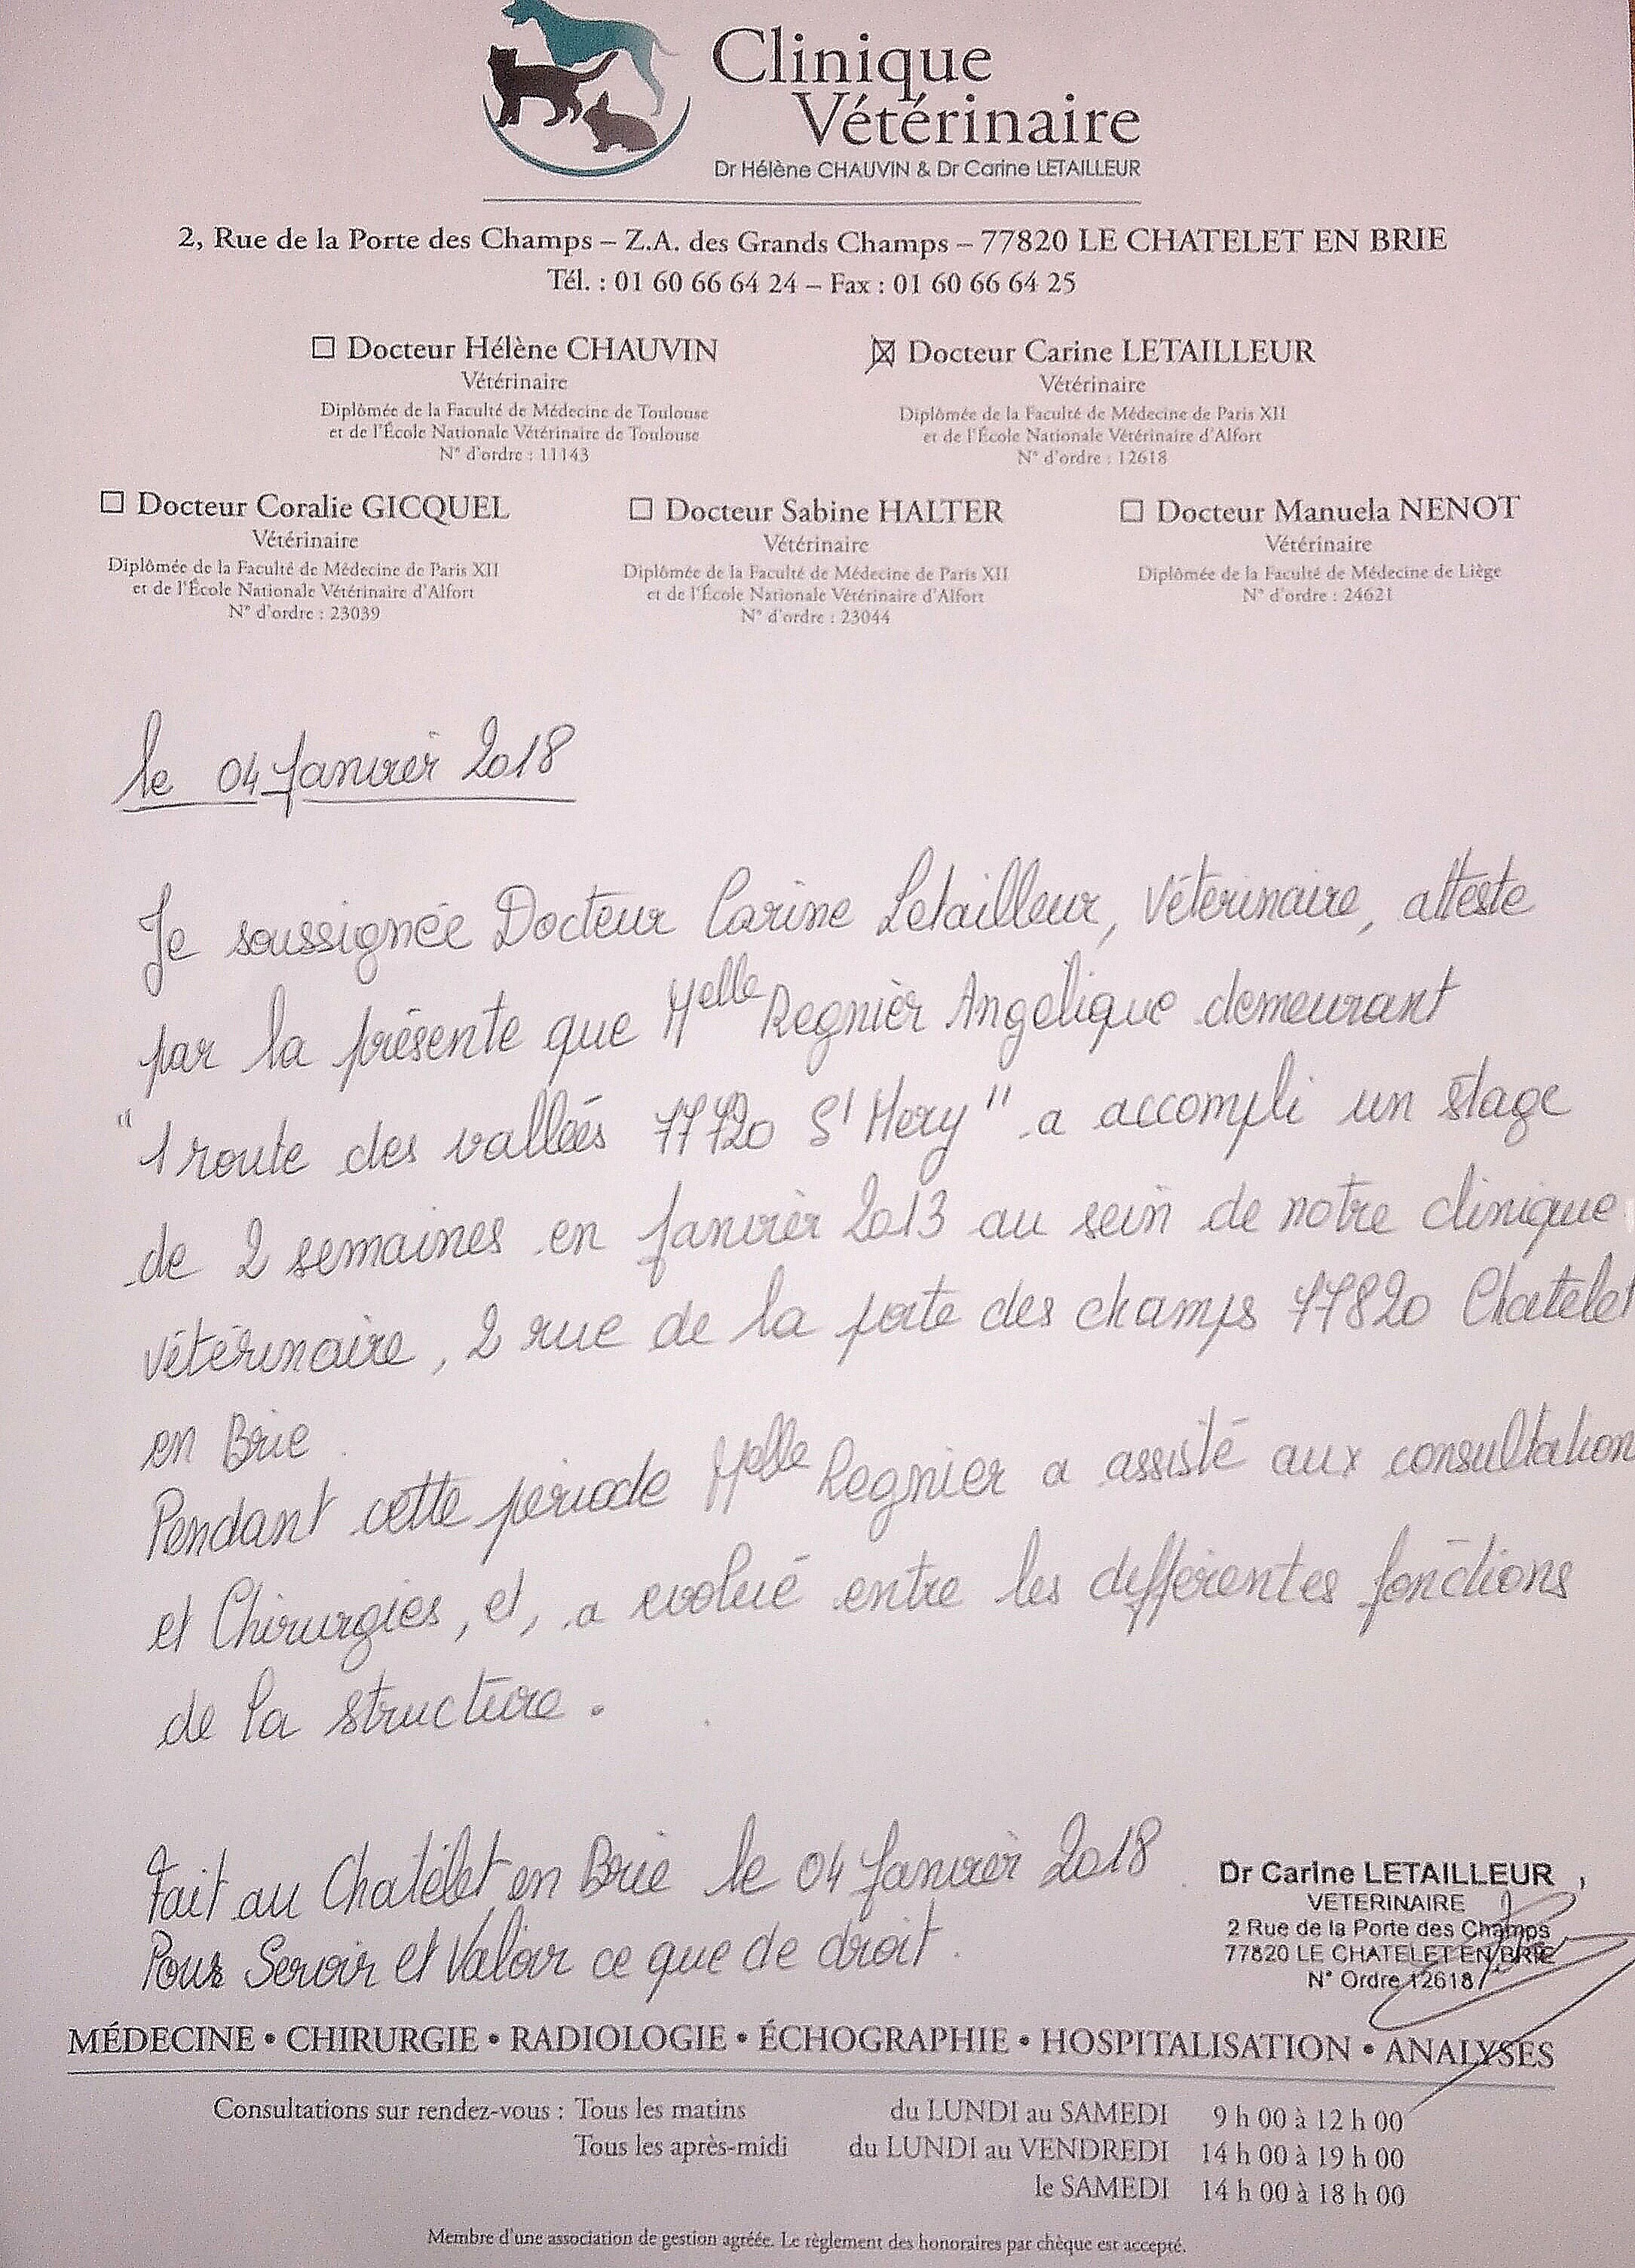 Clinique
Vétérinaire
Dr Hélène CHAUVIN & Dr Carine LETAILLEUR
2, Rue de la Porte des Champs – Z.A. des Grands Champs – 77820 LE CHATELET EN BRIE
Tél. : 01 60 66 64 24 – Fax : 01 60 66 64 25
☐ Docteur Hélène CHAUVIN
Vétérinaire
Diplômée de la Faculté de Médecine de Toulouse
et de l'École Nationale Vétérinaire de Toulouse
N° d'ordre : 11143
☒ Docteur Carine LETAILLEUR
Vétérinaire
Diplômée de la Faculté de Médecine de Paris XII
et de l'École Nationale Vétérinaire d'Alfort
N° d'ordre : 12618
☐ Docteur Coralie GICQUEL
Vétérinaire
Diplômée de la Faculté de Médecine de Paris XII
et de l'École Nationale Vétérinaire d'Alfort
N° d'ordre : 23039
☐ Docteur Sabine HALTER
Vétérinaire
Diplômée de la Faculté de Médecine de Paris XII
et de l'École Nationale Vétérinaire d'Alfort
N° d'ordre : 23044
☐ Docteur Manuela NENOT
Vétérinaire
Diplômée de la Faculté de Médecine de Liège
N° d'ordre : 24621
le 04 Janvier 2018
Je soussignée Docteur Carine Letailleur, Vétérinaire, atteste
par la présente que Melle Regnier Angélique demeurant
"1 route des vallées 77720 St Mery" a accompli un stage
de 2 semaines en Janvier 2013 au sein de notre clinique
vétérinaire, 2 rue de la porte des champs 77820 Chatelet
en Brie.
Pendant cette période Melle Regnier a assisté aux consultation
et Chirurgies, et, a evolué entre les différentes fonctions
de la structure.
Fait au Chatelet en Brie le 04 Janvier 2018.
Pour Servir et Valoir ce que de droit.
Dr Carine LETAILLEUR
VETERINAIRE
2 Rue de la Porte des Champs
77820 LE CHATELET EN BRIE
N° Ordre 12618
MÉDECINE • CHIRURGIE • RADIOLOGIE • ÉCHOGRAPHIE • HOSPITALISATION • ANALYSES
Consultations sur rendez-vous : Tous les matins du LUNDI au SAMEDI 9 h 00 à 12 h 00
Tous les après-midi du LUNDI au VENDREDI 14 h 00 à 19 h 00
le SAMEDI 14 h 00 à 18 h 00
Membre d'une association de gestion agréée. Le règlement des honoraires par chèque est accepté.